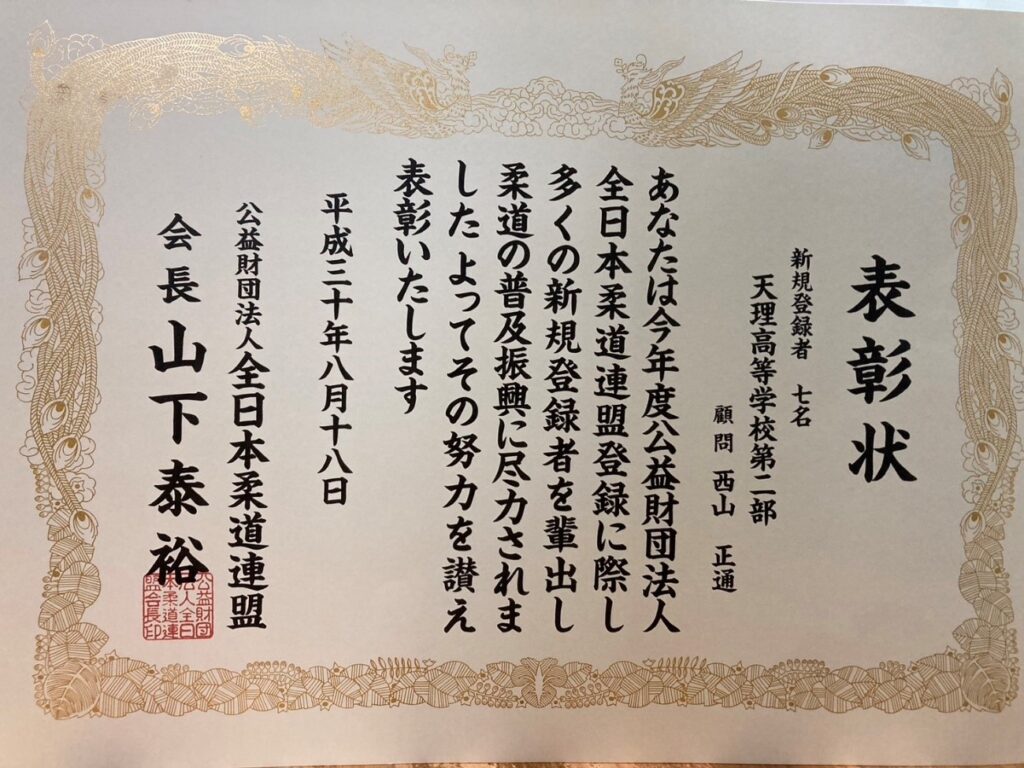 表彰状
新規登録者 七名
天理高等学校第二部
顧問 西山 正通
あなたは今年度公益財団法人
全日本柔道連盟登録に際し
多くの新規登録者を輩出し
柔道の普及振興に尽力されま
した よってその努力を讃え
表彰いたします
平成三十年八月十八日
公益財団法人全日本柔道連盟
会長 山下泰裕
公益財団
法人全日
本柔道連
盟会長印